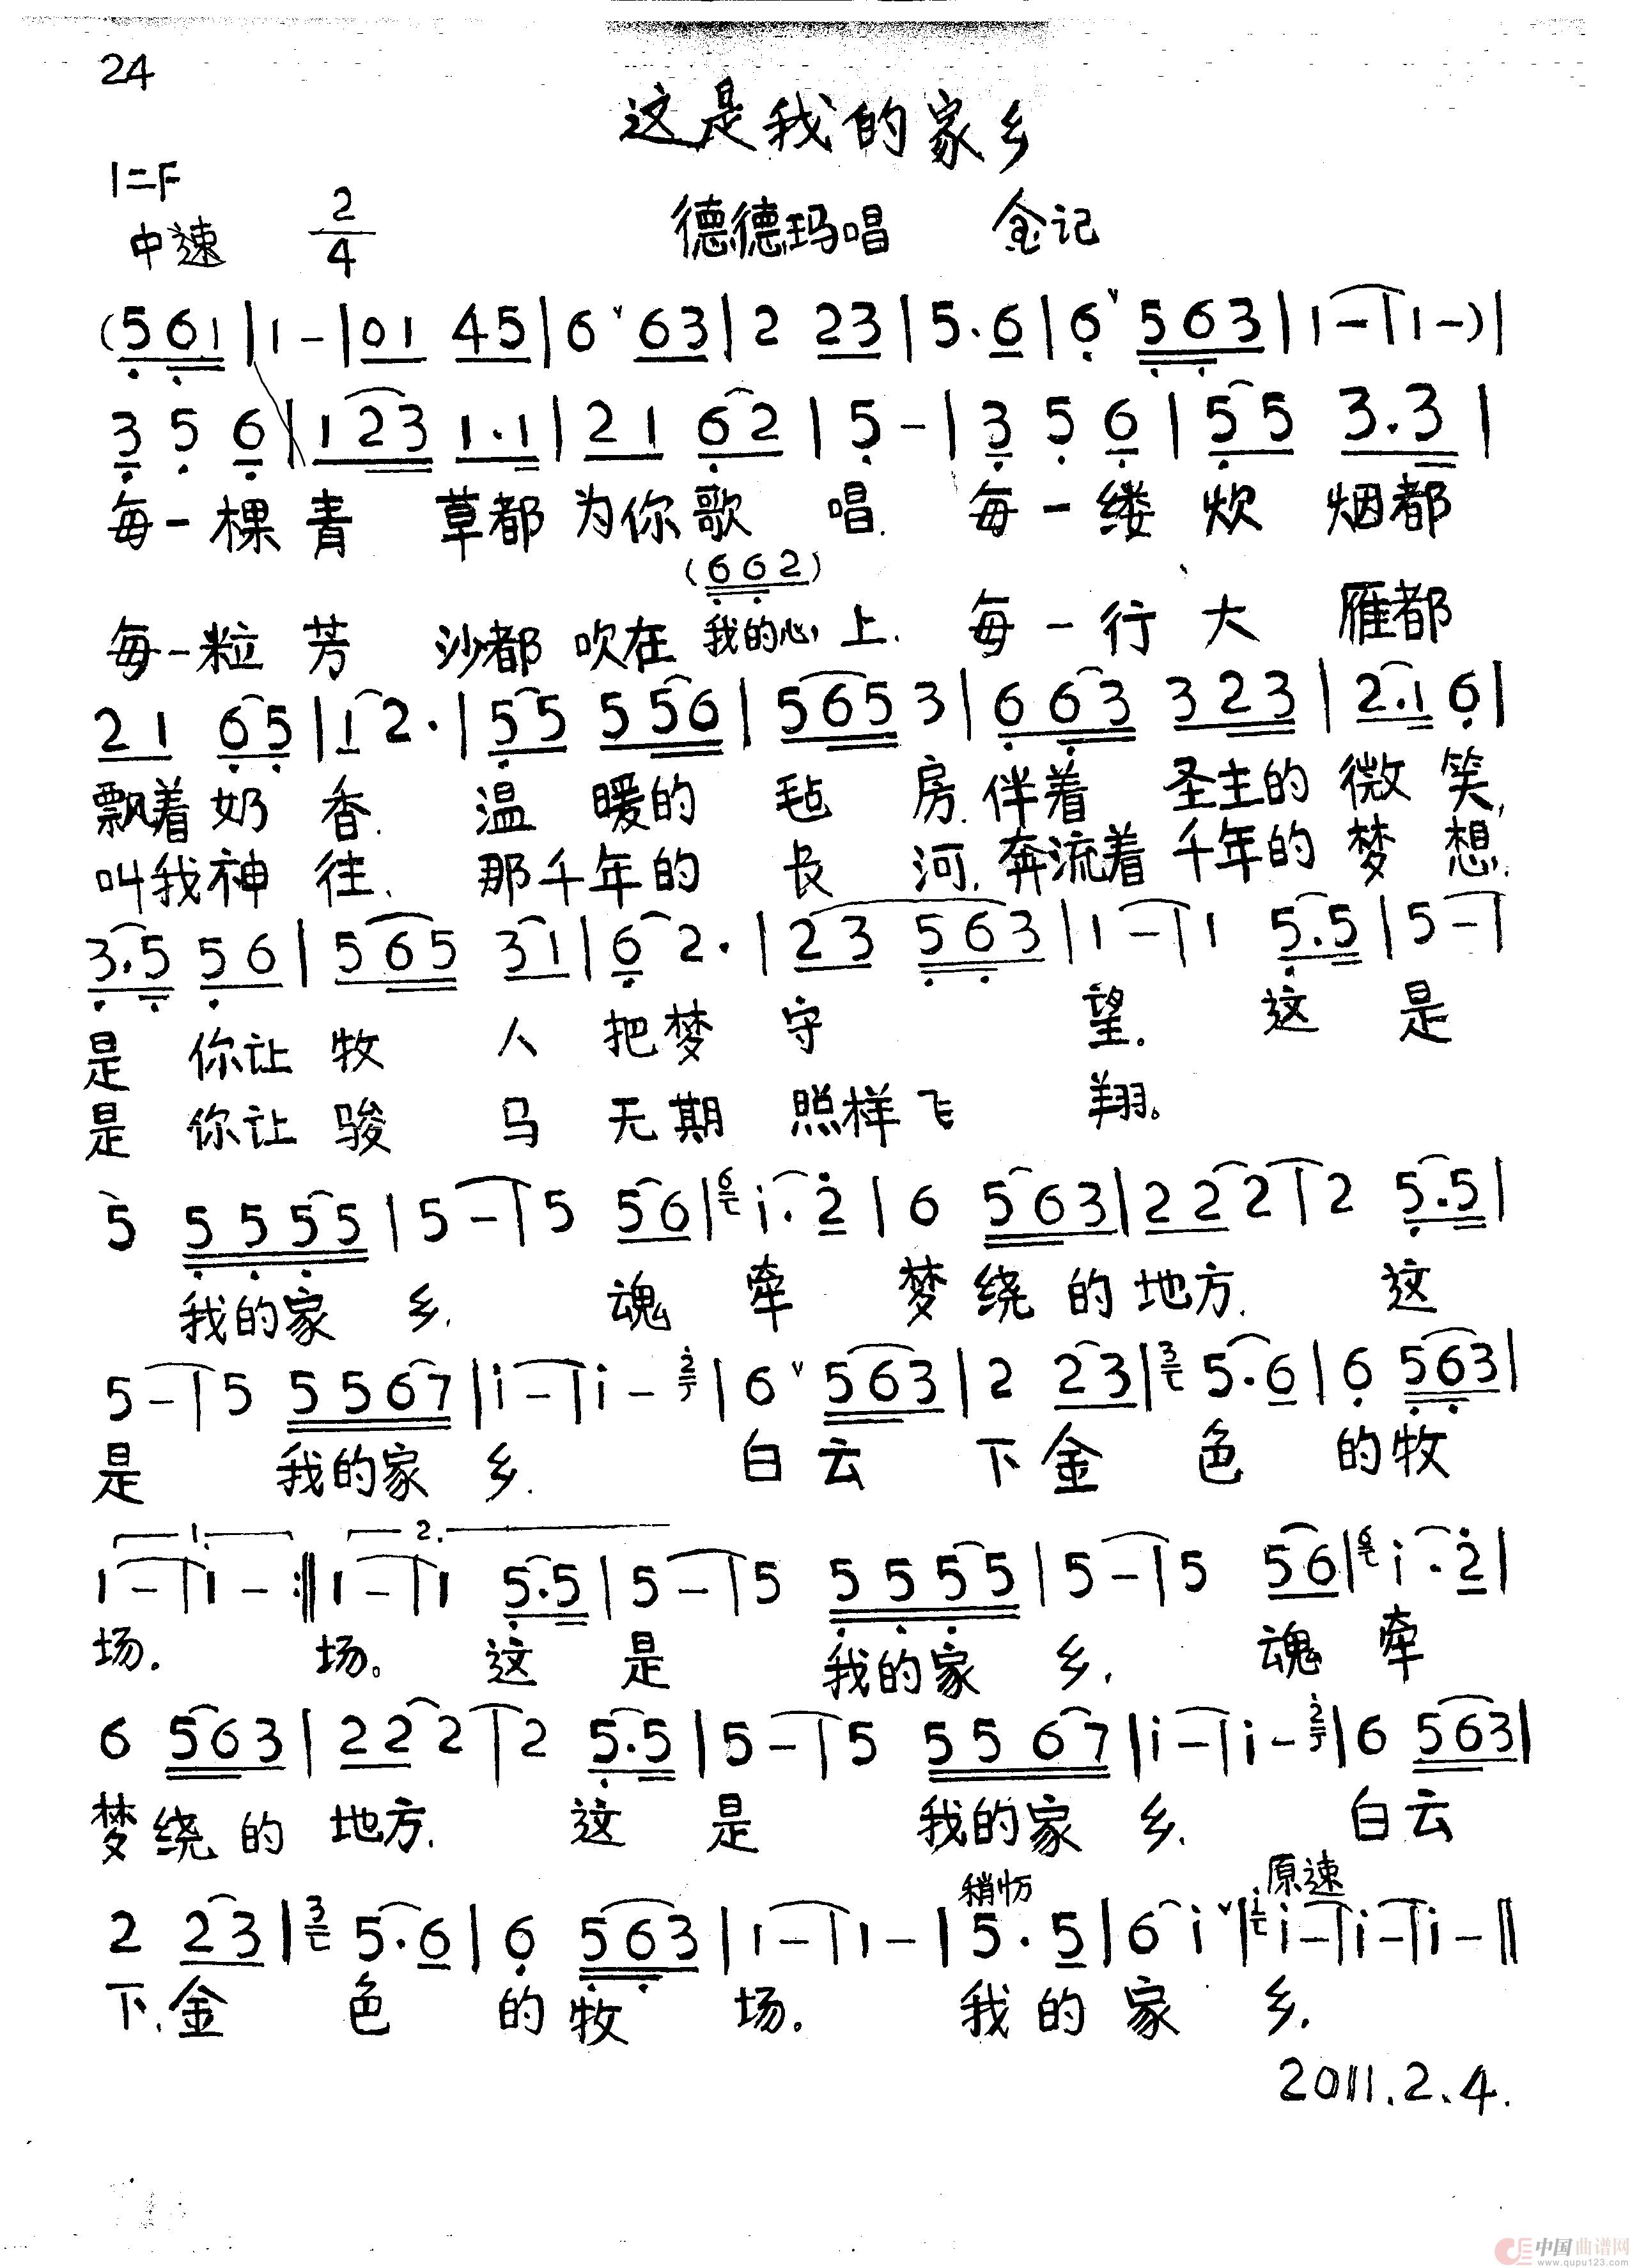 24
这是我的家乡
1=F
中速 2/4 德德玛唱 金记
(5 6 1 | 1 - | 0 1 4 5 | 6 ˅ 6 3 | 2 2 3 | 5 · 6 | 6 ˅ 5 6 3 | 1 - | 1 - ) |
3 5 6 | 1 2 3 1 · 1 | 2 1 6 2 | 5 - | 3 5 6 | 5 5 3 . 3 |
每一棵青 草都为你歌 唱. 每一缕炊 烟都
(6 6 2)
每一粒芳 沙都吹在我的心上. 每一行大 雁都
2 1 6 5 | 1 2 · | 5 5 5 5 6 | 5 6 5 3 | 6 6 3 3 2 3 | 2 . 1 6 |
飘着奶 香. 温 暖的 毡 房. 伴着 圣主的微 笑,
叫我神 往. 那千年的 长 河. 奔流着千年的梦 想.
3 . 5 5 6 | 5 6 5 3 1 | 6 2 · | 2 3 5 6 3 | 1 - | 1 5 . 5 | 5 - |
是 你让牧 人 把梦 守 望. 这 是
是 你让骏 马 无期 照样飞 翔。
5 5 5 5 5 | 5 - | 5 5 6 | 6 i · 2 | 6 5 6 3 | 2 2 2 | 2 5 . 5 |
我的家 乡. 魂 牵 梦 绕 的地方. 这
5 - | 5 5 5 6 7 | i - | i - 2 | 6 ˅ 5 6 3 | 2 2 3 | 3 5 · 6 | 6 5 6 3 |
是 我的家 乡. 白 云 下金 色 的牧
1. 2.
1 - | 1 - :‖ 1 - | 1 5 . 5 | 5 - | 5 5 5 5 5 | 5 - | 5 5 6 | 6 i · 2 |
场. 场。 这 是 我的家 乡. 魂 牵
6 5 6 3 | 2 2 2 | 2 5 . 5 | 5 - | 5 5 5 6 7 | i - | i - 2 | 6 5 6 3 |
梦绕的 地方. 这 是 我的家 乡. 白云
原速
2 2 3 | 3 5 · 6 | 6 5 6 3 | 1 - | 1 - | 5 · 5 | 6 i ˅ | i i - | i - | i - ‖
下.金 色 的牧 场. 我 的 家 乡.
2011.2.4.
中国曲谱网
www.qupu123.com